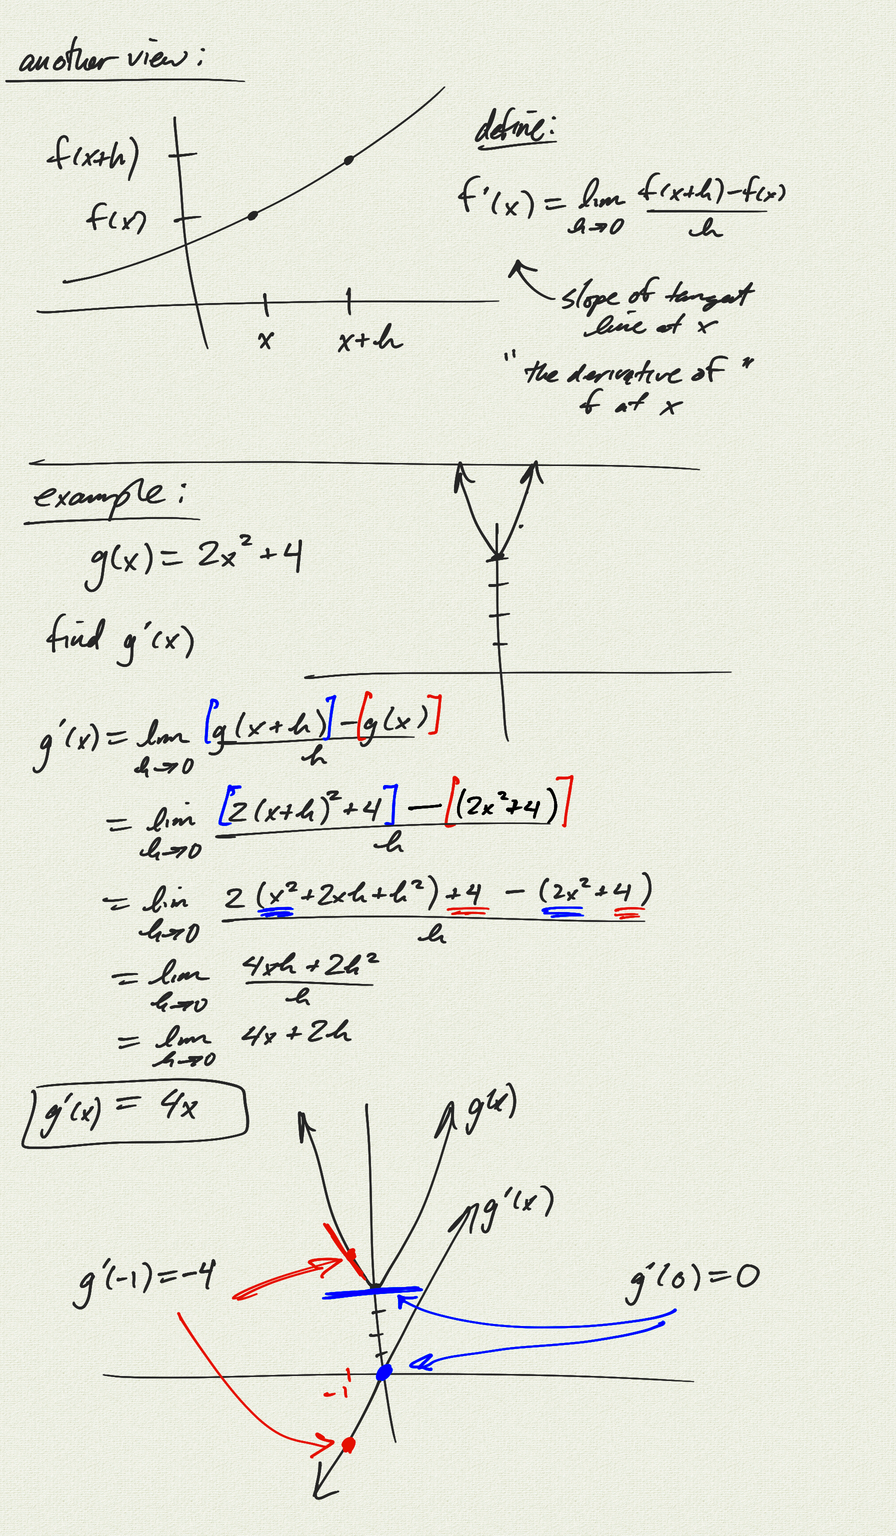 another view:
f(x+h)
f(x)
x
x+h
define:
f'(x) = lim h→0 f(x+h)-f(x) / h
slope of tangent
line at x
"the derivative of"
f at x
example:
g(x) = 2x² + 4
find g'(x)
g'(x) = lim h→0 [g(x+h)] - [g(x)] / h
= lim h→0 [2(x+h)² + 4] - [(2x² + 4)] / h
= lim h→0 2(x² + 2xh + h²) + 4 - (2x² + 4) / h
= lim h→0 4xh + 2h² / h
= lim h→0 4x + 2h
g'(x) = 4x
g(x)
g'(x)
g'(-1) = -4
g'(0) = 0
-1